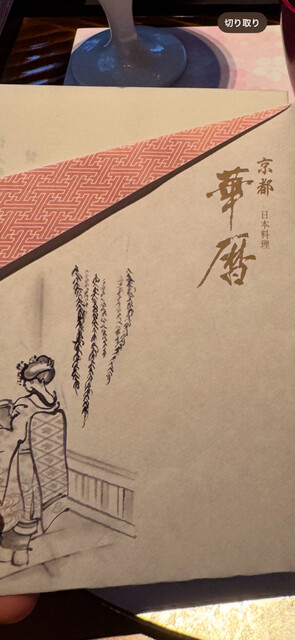 切り取り
京都
華暦
日本料理